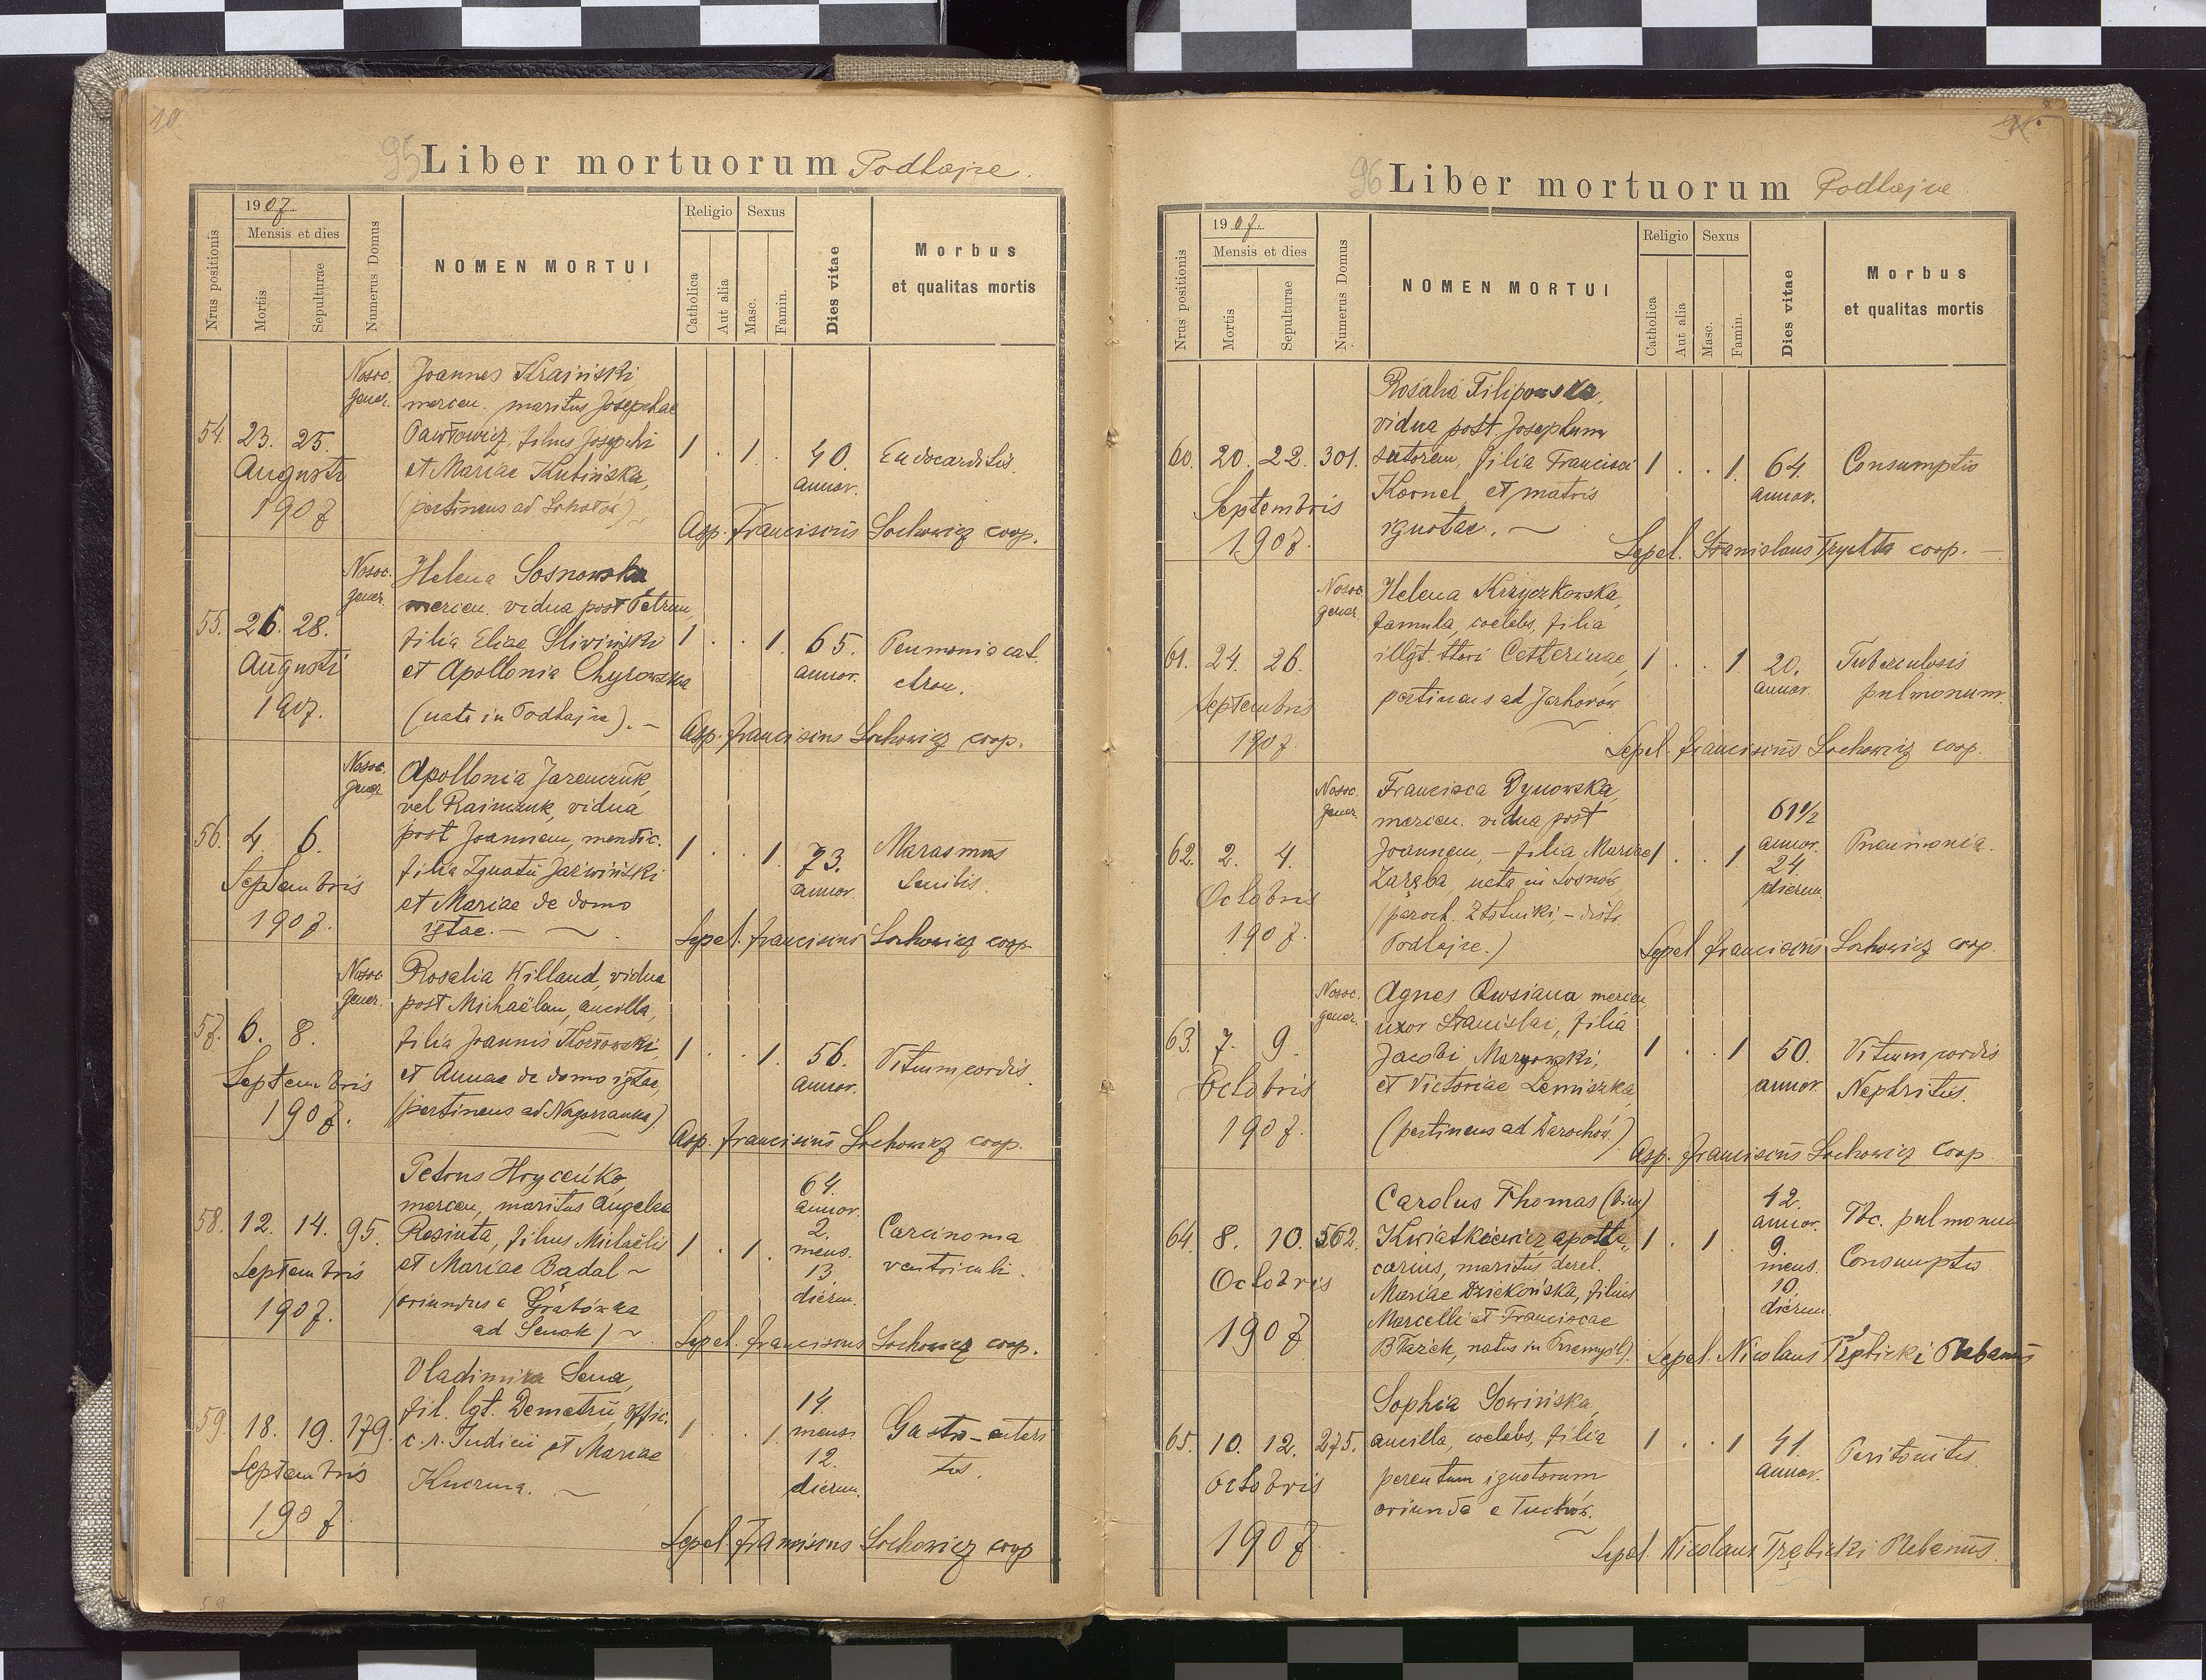 10
95 Liber mortuorum Podhajce.
1907.
Nrus positionis
Mensis et dies
Mortis
Sepulturae
Numerus Domus
NOMEN MORTUI
Religio
Catholica
Aut alia
Sexus
Masc.
Famin.
Dies vitae
Morbus
et qualitas mortis
Nosoc. Joannes Krainiski,
gener. mercen. maritus Josephae
54. 23. 25. Pawłowicz, filius Josephi 1 . 1 . 40. Endocarditis.
Augusti et Mariae Kubińska, annor.
1907 (pertinens ad Sokołów)
Asp. Franciscus Sochowicz coop.
Nosoc. Helena Sosnowska
gener. mercen. vidua post Petrum,
55. 26. 28. filia Eliae Sliwiński 1 . . 1. 65. Pneumonia cat.
Augusti et Apollonia Chyrowska annor. chron.
1907. (nata in Podhajce). —
Asp. Franciscus Sochowicz coop.
Nosoc. Apollonia Jarenczuk,
gener. vel Raimczuk, vidua
56. 4. 6. post Joannem, mendic. 1 . . 1. 73. Marasmus
Septembris filia Ignatii Jarwiński annor. senilis.
1907. et Mariae de domo
igtae. —
Sepel. Franciscus Sochowicz coop.
Nosoc. Rosalia Willand, vidua
gener. post Michaëlem, ancilla,
57. 6. 8. filia Joannis Kozłowski, 1 . . 1. 56. Vitium cordis.
Septembris et Annae de domo igtae, annor.
1907. (pertinens ad Nagorzanka)
Asp. Franciscus Sochowicz coop.
Petrus Hryceńko,
mercen, maritus Angelae
58. 12. 14. 95. Resiuta, filius Michaëlis 1 . 1 . 64. annor. 2. mens. 13. dierum. Carcinoma
Septembris et Mariae Badal ventriculi.
1907. (oriundus e Grabówka
ad Sanok)
Sepel. Franciscus Sochowicz coop.
Vladimira Sena,
fil. lgt. Demetrii, offic.
59. 18. 19. 179. c. r. Judicii et Mariae 1 . . 1. 14. mens. 12. dierum. Gastro-enteri
Septembris Kuczma. tis.
1907
Sepel. Franciscus Sochowicz coop
96 Liber mortuorum Podhajce.
1907.
Nrus positionis
Mensis et dies
Mortis
Sepulturae
Numerus Domus
NOMEN MORTUI
Religio
Catholica
Aut alia
Sexus
Masc.
Famin.
Dies vitae
Morbus
et qualitas mortis
Rosalia Filipowska,
vidua post Josephum
60. 20. 22. 301. sutorem, filia Francisci 1 . . 1. 64. Consumptio
Septembris Kornel, et matris annor.
1907. ignotae. —
Sepel. Stanislaus Tryctta coop. —
Nosoc. Helena Krzyczkowska,
gener. famula, coelebs, filia
61. 24. 26. illgt. thori Catherinae, 1 . . 1 20. Tuberculosis
Septembris pertinens ad Jarhorów annor. pulmonum.
1907.
Sepel. Franciscus Sochowicz coop.
Nosoc. Francisca Dynowska,
gener. mercen. vidua post
62. 2. 4. Joannem, — filia Mariae 1 . . 1 61½ annor. 24. dierum. Pneumonia.
Octobris Zaręba, nata in Sosnów,
1907. (paroch. Złotniki, — distr.
Podhajce.)
Sepel. Franciscus Sochowicz coop.
Nosoc. Agnes Owsiana mercen,
gener. uxor Stanislai, filia
63. 7. 9. Jacobi Maryowski, 1 . . 1 50. Vitium cordis
Octobris et Victoriae Lemiszka, annor. Nephritis.
1907. (pertinens ad Darochów.)
Asp. Franciscus Sochowicz coop.
Carolus Thomas (bin.)
64. 8. 10. 562. Kwiatkiewicz apothe- 1 . 1 . 42. annor. 9. mens. 10. dierum. Tbc. pulmonum
Octobris carius, maritus derel. Consumptio
1907 Mariae Dziekońska, filius
Marcelli et Franciscae
Błażek, natus in Przemyśl).
Sepel. Nicolaus Trębicki Plebanus
Sophia Sowińska,
65. 10. 12. 275. ancilla, coelebs, filia 1 . . 1 41. Peritonitis.
Octobris parentum ignotorum annor.
1907 oriunda e Tuchów.
Sepel. Nicolaus Trębicki Plebanus.